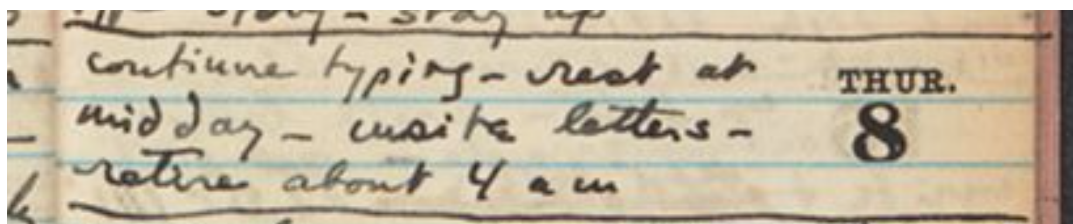 story - stay up
continue typing - rest at
THUR.
8
midday - write letters -
retire about 4 am